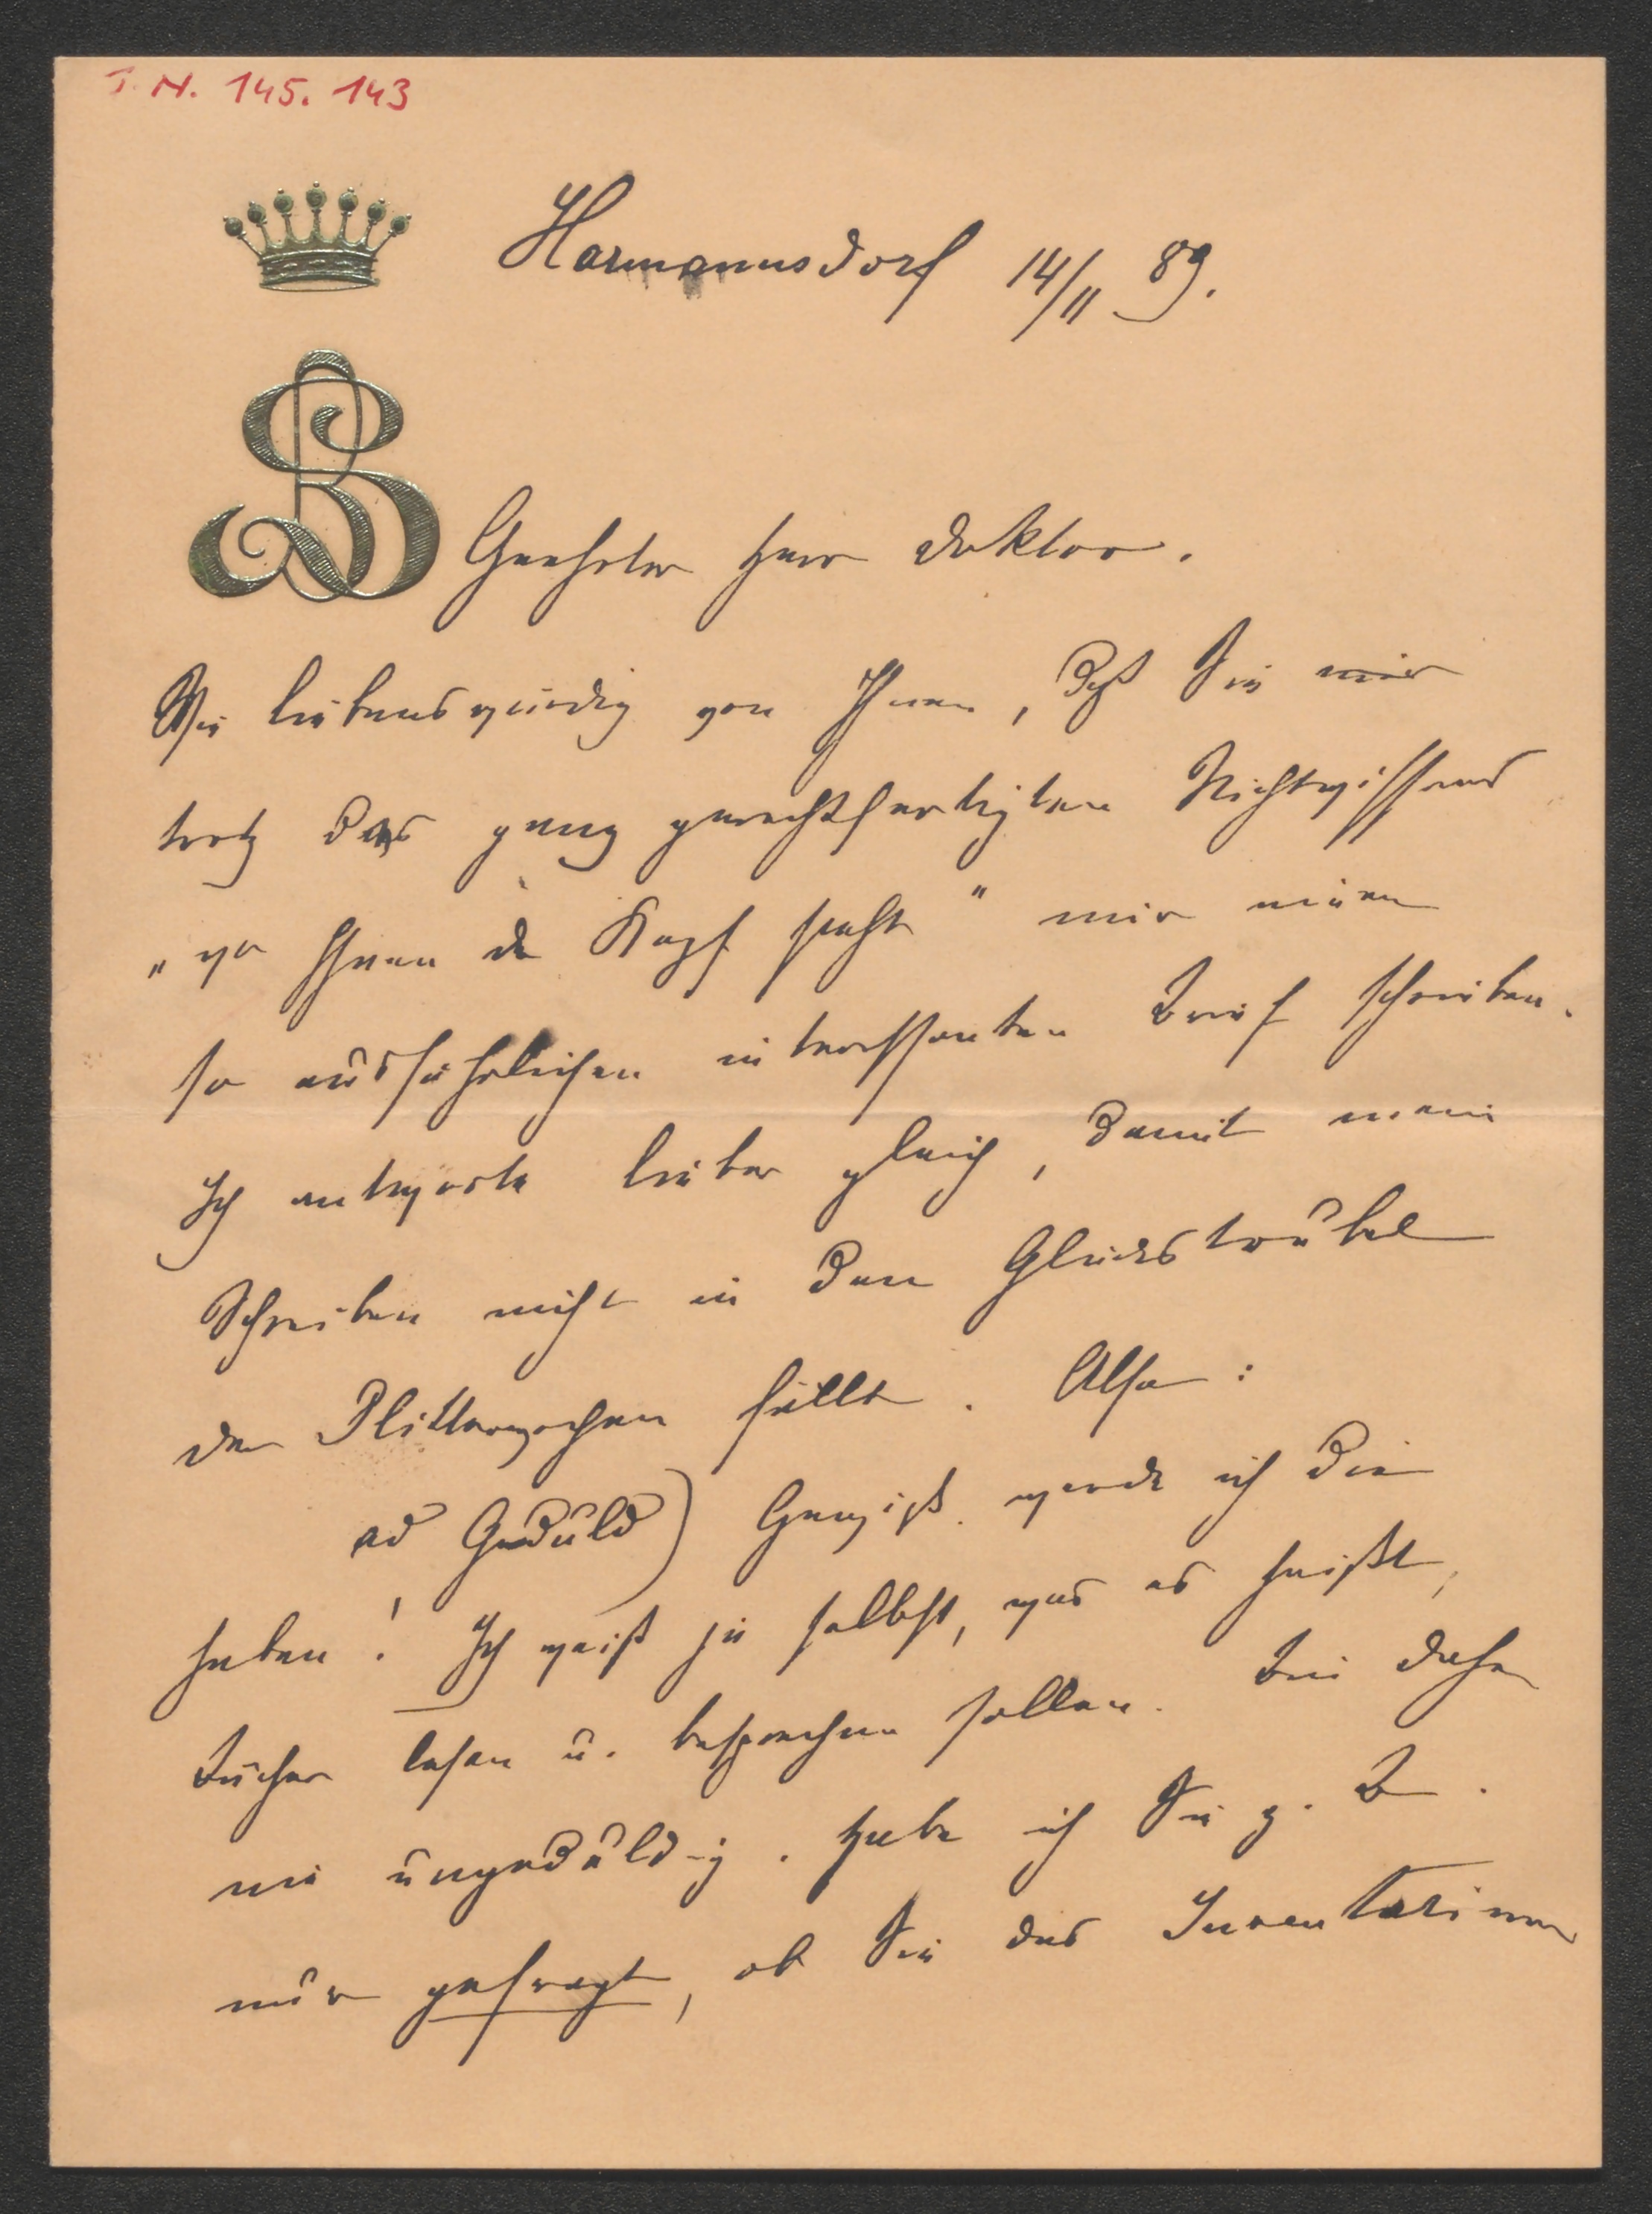 I. N. 145.143
Harmannsdorf 14/11 89.
BS
Geehrter Herr Doktor.
Wie liebenswürdig von Ihnen, daß Sie mir
trotz des ganz gerechtfertigten Nichtwissens
„wo Ihnen der Kopf steht" mir einen
so ausführlichen interessanten Brief schreiben.
Ich antworte lieber gleich, damit mein
Schreiben nicht in den Glückstrubel
der Flitterwochen fällt. Also:
ad Geduld) Gewiß werde ich die
haben! Ich weiß ja selbst, was es heißt,
Bücher lesen u. besprechen sollen. Bin daher
nie ungeduldig. Habe ich Sie z. B.
nur gefragt, ob Sie das Inventarium